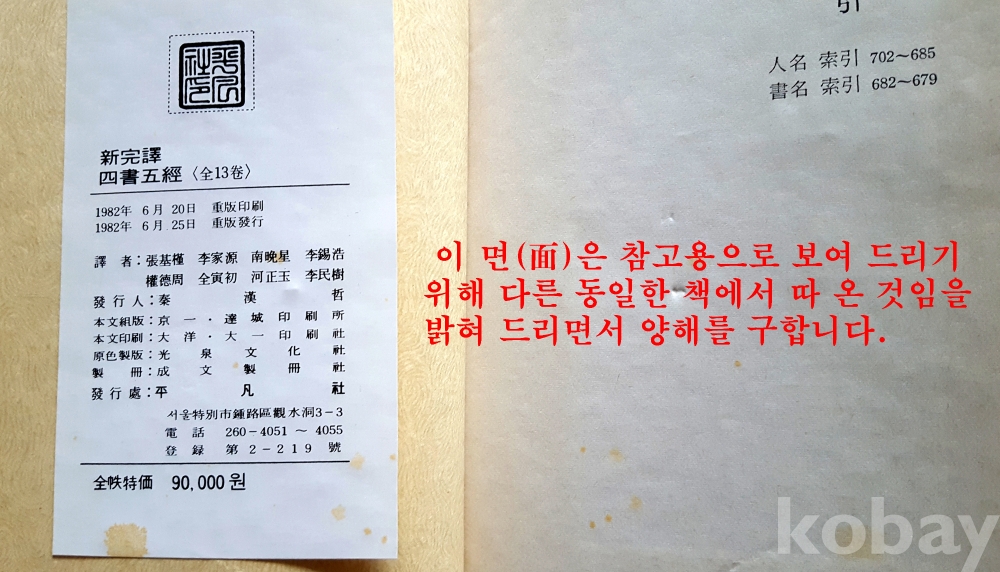 平凡社印
新完譯
四書五經〈全13卷〉
1982年 6月 20日 重版印刷
1982年 6月 25日 重版發行
譯者:張基槿 李家源 南晩星 李錫浩
權德周 全寅初 河正玉 李民樹
發行人:秦漢哲
本文組版:京一・達城印刷所
本文印刷:大洋・大一印刷社
原色製版:光泉文化社
製冊:成文製冊社
發行處:平凡社
서울特別市鍾路區觀水洞3-3
電話 260-4051 ~ 4055
登録 第2-219號
全帙特価 90,000원
引
人名 索引 702~685
書名 索引 682~679
이 면(面)은 참고용으로 보여 드리기
위해 다른 동일한 책에서 따 온 것임을
밝혀 드리면서 양해를 구합니다.
kobay